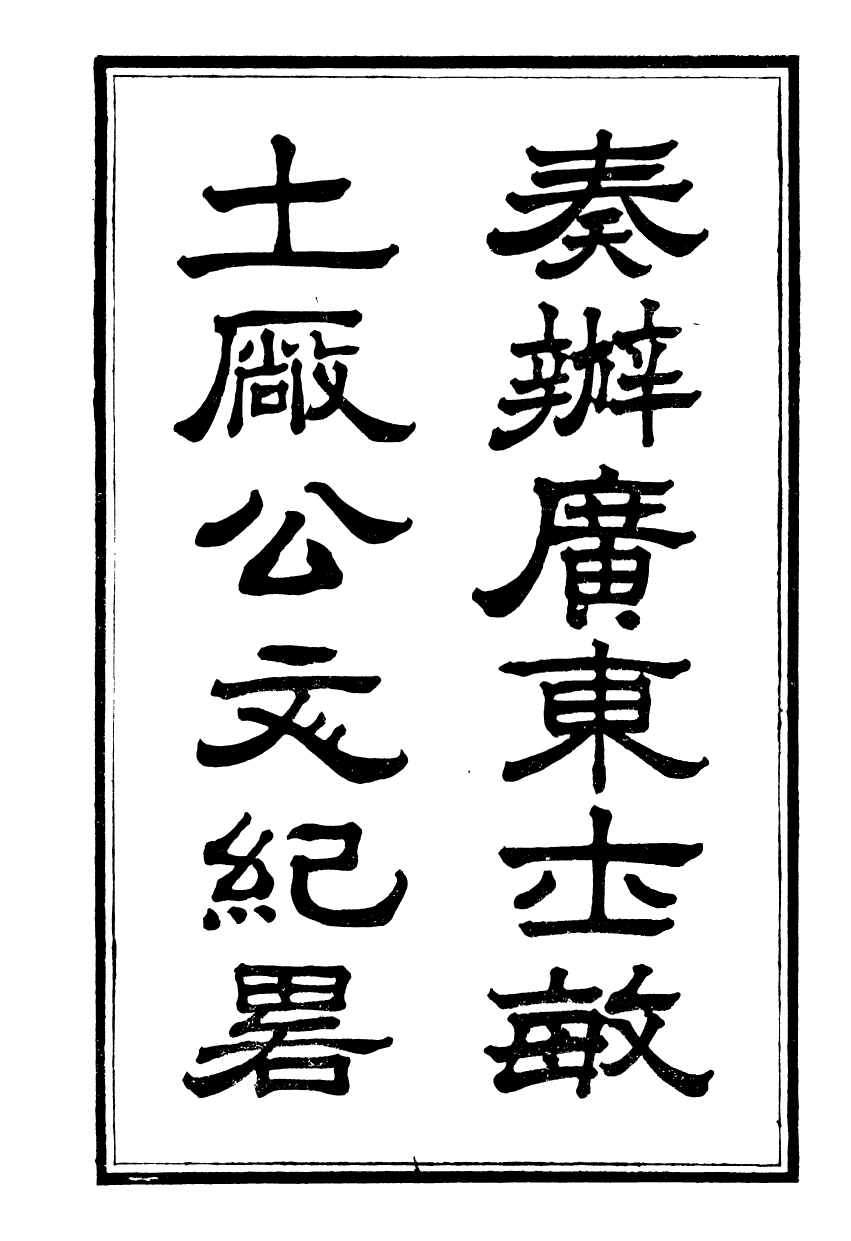 奏辦廣東士敏
土廠公文紀畧